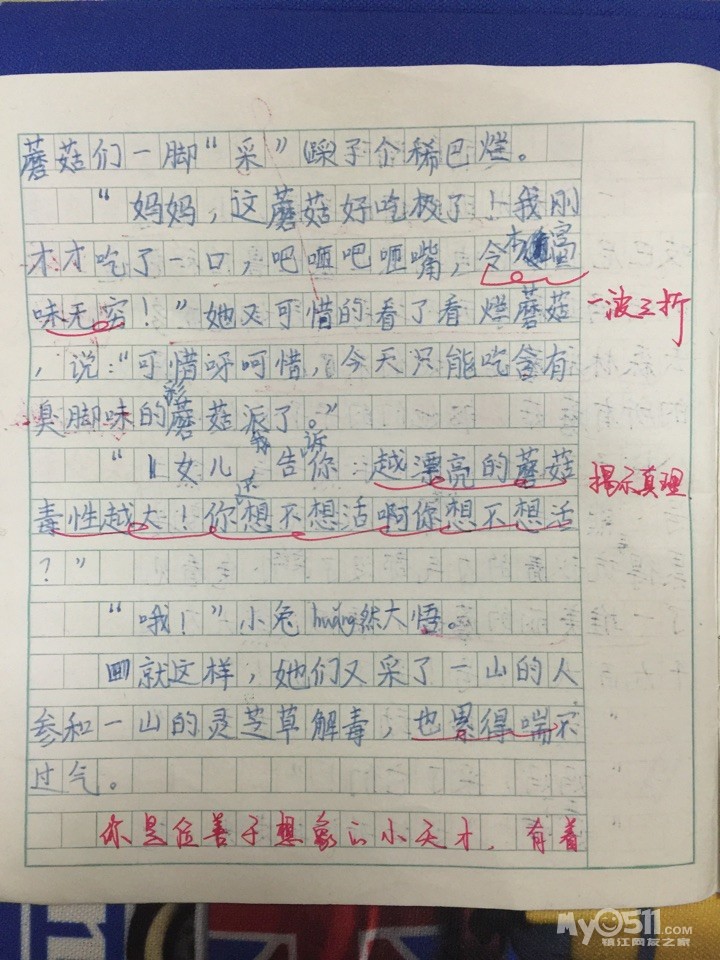 蘑菇们一脚“采”(踩)个稀巴烂。
“妈妈,这蘑菇好吃极了!我刚
才才吃了一口,吧咂吧咂嘴,令
味无穷!”她又可惜的看了看烂蘑菇
一波三折
,说:“可惜呀可惜,今天只能吃含有
臭脚味的彩蘑菇派了。”
“女儿,我告诉你:越漂亮的蘑菇
揭示真理
毒性越大!你还想不想活啊你想不想活
?”
“哦!”小兔huǎng然大悟。
就这样,她们又采了一山的人
参和一山的灵芝草解毒,也累得喘不
过气。
你是位善于想象的小天才,有着
My0511.com
镇江网友之家